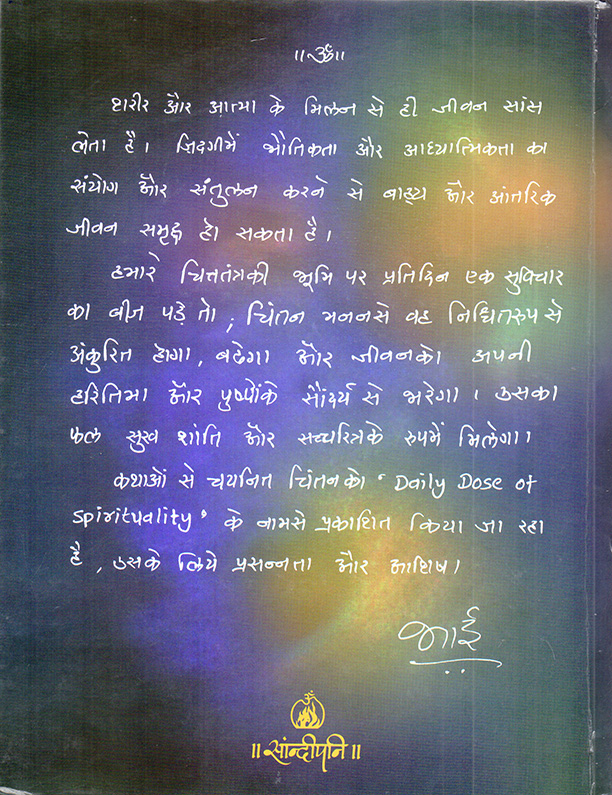 ॥ॐ॥
शरीर और आत्मा के मिलन से ही जीवन सांस
लेता है। जिंदगीमें भौतिकता और आध्यात्मिकता का
संयोग और संतुलन करने से बाह्य और आंतरिक
जीवन समृद्ध हो सकता है।
हमारे चित्ततंत्रकी भूमि पर प्रतिदिन एक सुविचार
का बीज पड़े तो; चिंतन मननसे वह निश्चितरुप से
अंकुरित होगा, बढेगा और जीवनको अपनी
हरितिमा और पुष्पोंके सौंदर्य से भरेगा। उसका
फल सुख शांति और सच्चरित्रके रुपमें मिलेगा।
कथाओं से चयनित चिंतनको 'Daily Dose of
Spirituality' के नामसे प्रकाशित किया जा रहा
है, उसके लिये प्रसन्नता और आशिष।
भाई
॥सांन्दीपनि॥